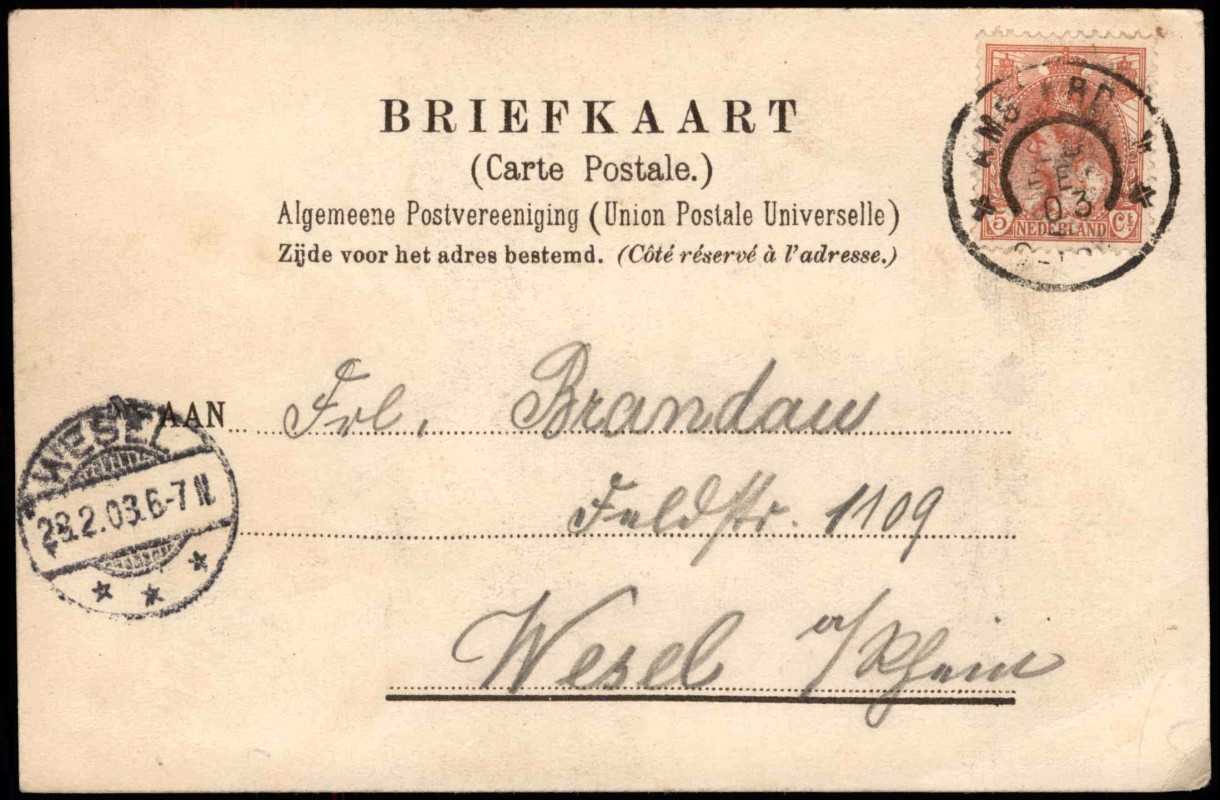 BRIEFKAART
(Carte Postale.)
Algemeene Postvereeniging (Union Postale Universelle)
Zijde voor het adres bestemd. (Côté réservé à l'adresse.)
5 Ct
NEDERLAND
03
AAN
Frl. Brandau
Feldstr. 1109
Wesel a/Rhein
WESEL
28.2.03.6-7 N.